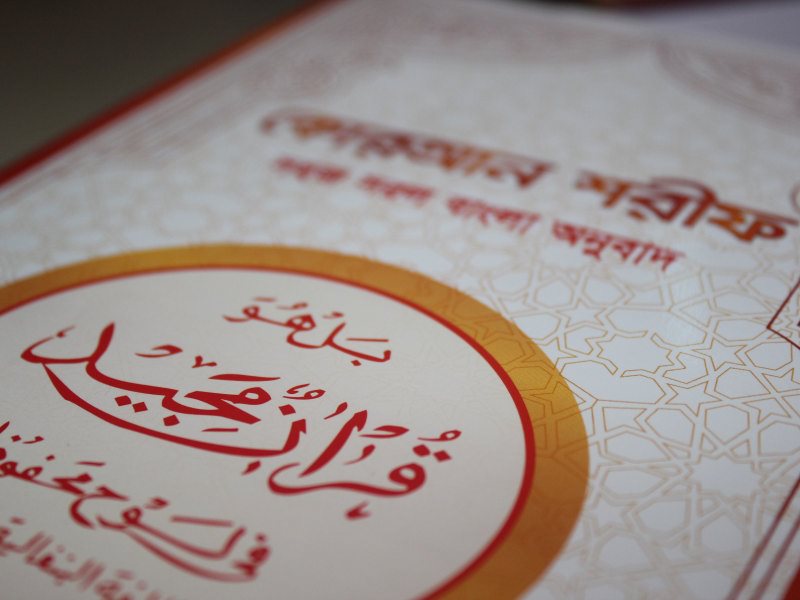 কোরআন শরীফ
সহজ সরল বাংলা অনুবাদ
بَلْ هُوَ
قُرْآنٌ مَّجِيدٌ
فِي لَوْحٍ مَّحْفُوظٍ
البنغالية